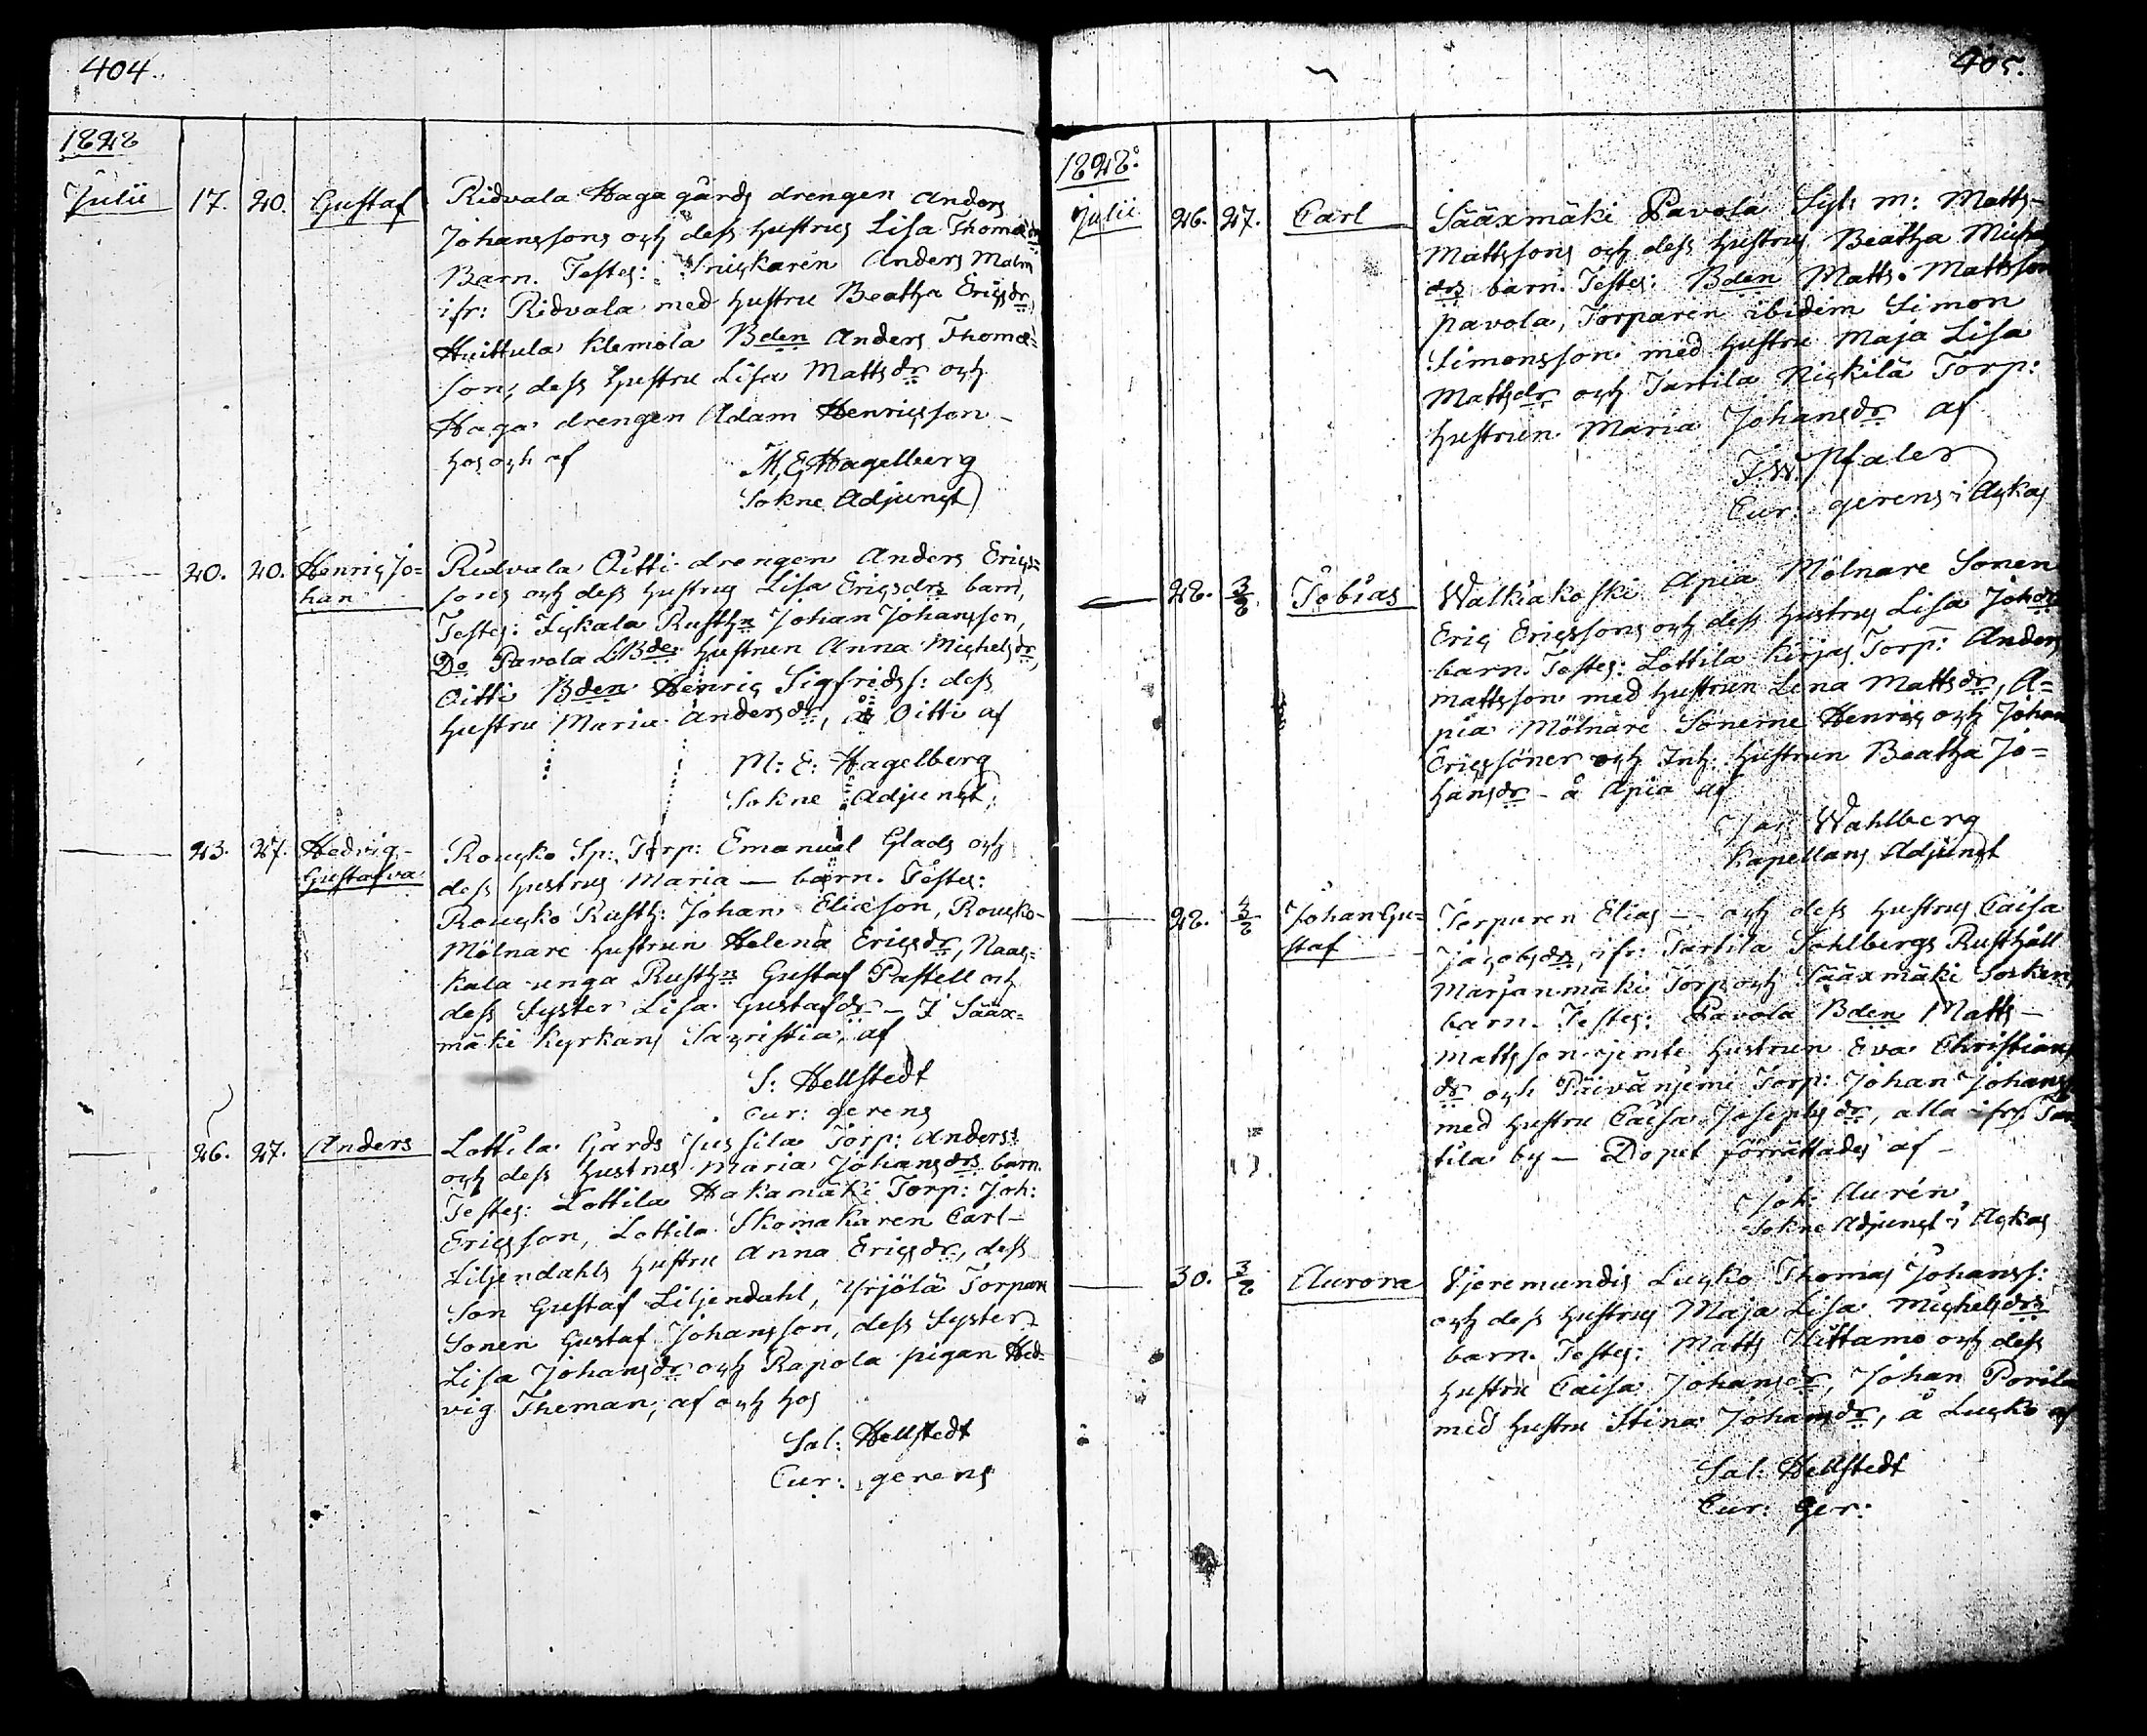 404.
1828
Julii 17. 20. Gustaf Ridvala Haga gårds drengen Anders
Johanssons och dess hustrus Lisa Thomædrs
Barn. Testes: Snickaren Anders Malm
ifr: Ridvala med hustru Beatha Ericsdr,
Huittula Klemola Bden Anders Thomæ-
son, dess hustru Lisa Mattsdr och
Haga drengen Adam Henricsson -
hos och af M. E. Hagelberg
Sokne Adjunct
20. 20. Henric Jo= Ridvala Oitti drengen Anders Erics=
han sons och dess hustrus Lisa Ericsdrs barn,
Testes: Johan Johansson,
Do Pavola hustrun Anna Michelsdr,
Oitti Bden Henric Sigfridss: dess
hustru Maria Andersdr, å Oitti af
M: E: Hagelberg
Sokne Adjunct,
23. 27. Hedvig- Roucko Sp: Torp: Emanuel Glads och
Gustafva dess hustrus Maria — barn. Testes:
Roucko Rusth: Johan Elicson, Roucko-
Mölnare hustrun Helena Ericsdr, Naas=
kala unga Rusthn Gustaf Pastell och
dess Syster Lisa Gustafsdr - I Sääx=
mäki Kyrkans Sacristia, af
S: Hellstedt
cur: gerens
26. 27. Anders Lottila Gårds Jussila Torp: Anders:
och dess hustrus Maria Johansdrs barn.
Testes: Lottila Hakamäki Torp: Joh:
Ericsson, Lottila Skomakaren Carl-
Liljendahls hustru Anna Ericsdr, dess
Son Gustaf Liljendahl, Yrjölä Torpare
Sonen Gustaf Johansson, dess Syster
Lisa Johansdr och Rapola pigan Hed-
vig Theman, af och hos
Sal: Hellstedt
Cur: gerens
405.
1828.
Julii 26. 27. Carl Sääxmäki Pavola Matts-
Mattssons och dess hustrus Beatha Michels
drs barn. Testes: Bden Matts Mattsson
Pavola, Torparen ibidem Simon
Simonsson med hustru Maja Lisa
Mattsdr och Tartila Nickilä Torp:
hustrun Maria Johansdr af
F. W. Pfaler
Cur: gerens i Ackas
28. 3/8 Tobias Walkiakoski Apia Mölnare Sonen
Eric Ericssons och dess hustrus Lisa Johdrs
barn. Testes: Lottila Kirjas Torp: Anders
Mattsson med hustrun Lena Mattsdr, A=
pia Mölnare Sönerne Henric och Johan
Ericssöner och Inh. hustrun Beatha Jo=
hansdr - å Apia af
Jac Wahlberg
Kapellans Adjunct
28. 3/8 Johan Gu= Torparen Elias — och dess hustrus Caisa
staf Jacobsdrs, ifr: Tartila Sohlbergs Rusthåll
Marjanmäki Torp och Sääxmäki Socken,
barn. Testes: Pavola Bden Matts -
Mattsson jemte hustrun Eva Christians
dr och Päivänjemi Torp: Johan Johanss
med hustru Caisa Josephsdr, alla ifr: Tar
tila by — Dopet förrättades af -
Joh: Aurén
Sokne Adjunct i Ackas
30. 3/8 Aurora Vjeremundis Lucko Thomas Johanss:
och dess hustrus Maja Lisa Michelsdrs
barn. Testes: Matts Kittamo och dess
hustru Caisa Johansdr, Johan Porila
med hustru Stina Johansdr, å Lucko af
Sal: Hellstedt
Cur: Ger: